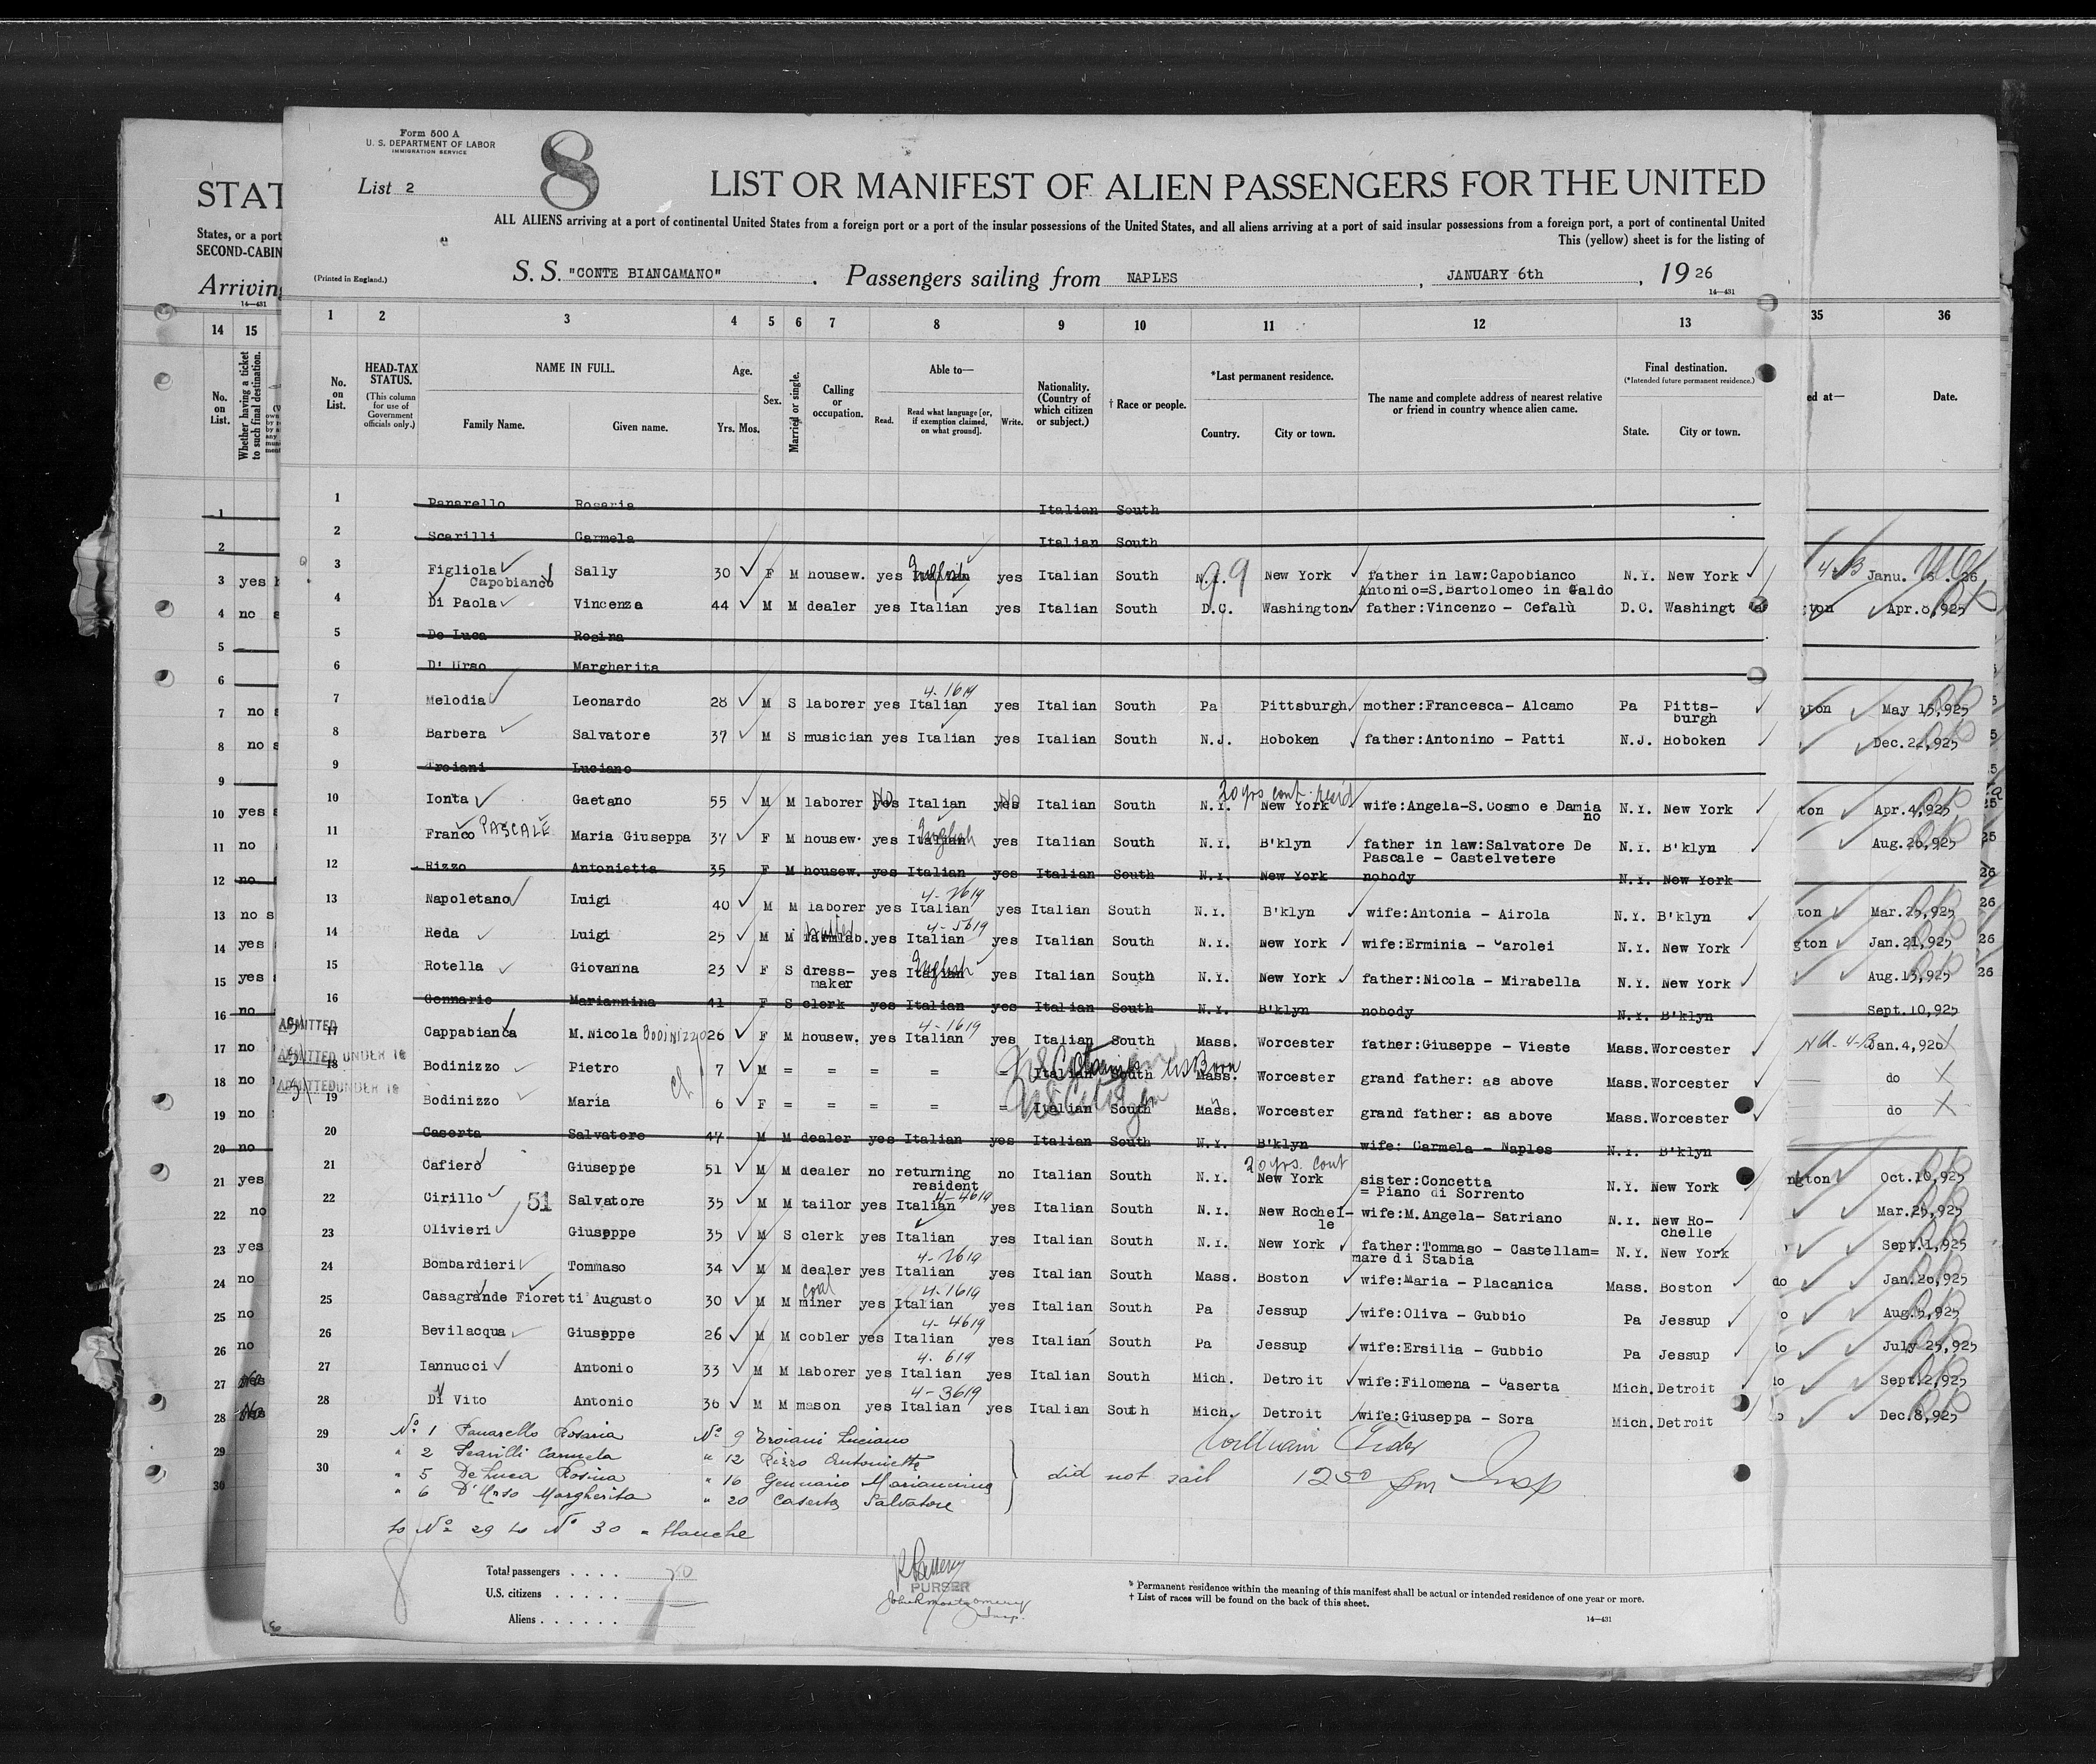 Form 500 A
U. S. DEPARTMENT OF LABOR
IMMIGRATION SERVICE
List 2
8
LIST OR MANIFEST OF ALIEN PASSENGERS FOR THE UNITED
STAT
ALL ALIENS arriving at a port of continental United States from a foreign port or a port of the insular possessions of the United States, and all aliens arriving at a port of said insular possessions from a foreign port, a port of continental United
States, or a port
This (yellow) sheet is for the listing of
SECOND-CABIN
(Printed in England.)
S. S. "CONTE BIANCAMANO", Passengers sailing from NAPLES, JANUARY 6th, 19 26
Arriving
14—431
14—431
14 15 1 2 3 4 5 6 7 8 9 10 11 12 13 35 36
No. on List.
Whether having a ticket to such final destination.
No. on List.
HEAD-TAX STATUS.
(This column for use of Government officials only.)
NAME IN FULL.
Family Name. Given name.
Age.
Yrs. Mos.
Sex.
Married or single.
Calling or occupation.
Able to—
Read. Read what language [or, if exemption claimed, on what ground]. Write.
Nationality. (Country of which citizen or subject.)
† Race or people.
*Last permanent residence.
Country. City or town.
The name and complete address of nearest relative or friend in country whence alien came.
Final destination.
(*Intended future permanent residence.)
State. City or town.
ed at—
Date.
1 Panarello Rosaria Italian South
2 Scarilli Carmela Italian South
3 Figliola Capobianco Sally 30 F M housew. yes English yes Italian South N.Y. New York father in law:Capobianco Antonio=S.Bartolomeo in Galdo N.Y. New York Janu. 26
4 Di Paola Vincenza 44 M M dealer yes Italian yes Italian South D.C. Washington father:Vincenzo - Cefalù D.C. Washingt gton Apr.8,925
5 De Luca Rosina
6 D' Urso Margherita
7 Melodia Leonardo 28 M S laborer yes Italian 4-1619 yes Italian South Pa Pittsburgh mother:Francesca- Alcamo Pa Pitts-burgh gton May 15,925
8 Barbera Salvatore 37 M S musician yes Italian yes Italian South N.J. Hoboken father:Antonino - Patti N.J. Hoboken Dec.22,925
9 Troiani Luciano
10 Ionta Gaetano 55 M M laborer yes No Italian yes No Italian South N.Y. New York 20 yrs cont. resid wife:Angela-S.Cosmo e Damiano N.Y. New York ton Apr.4,925
11 Franco PASCALE Maria Giuseppa 37 F M housew. yes Italian English yes Italian South N.Y. B'klyn father in law:Salvatore De Pascale - Castelvetere N.Y. B'klyn Aug.26,925
12 Rizzo Antonietta 35 F M housew. yes Italian yes Italian South N.Y. New York nobody N.Y. New York
13 Napoletano Luigi 40 M M laborer yes Italian 4-2619 yes Italian South N.Y. B'klyn wife:Antonia - Airola N.Y. B'klyn ton Mar.25,925
14 Reda Luigi 25 M M farmlab. yes Italian 4-5619 yes Italian South N.Y. New York wife:Erminia - Carolei N.Y. New York gton Jan.21,925
15 Rotella Giovanna 23 F S dress-maker yes Italian English yes Italian South N.Y. New York father:Nicola - Mirabella N.Y. New York Aug.13,925
16 Gennario Mariannina 41 F S clerk yes Italian yes Italian South N.Y. B'klyn nobody N.Y. B'klyn Sept.10,925
ADMITTED
17 Cappabianca M.Nicola BODINIZZO 26 F M housew. yes Italian 4-1619 yes Italian South Mass. Worcester father:Giuseppe - Vieste Mass.Worcester Jan.4,926
ADMITTED UNDER
18 Bodinizzo Pietro 7 M = = = = Italian South US Citizen US Born Mass. Worcester grand father: as above Mass.Worcester do
ADMITTED UNDER
19 Bodinizzo Maria 6 F = = = = = Italian South US Citizen Mass. Worcester grand father: as above Mass.Worcester do
20 Caserta Salvatore 47 M M dealer yes Italian yes Italian South N.Y. B'klyn wife: Carmela - Naples N.Y. B'klyn
21 Cafiero Giuseppe 51 M M dealer no returning resident no Italian South N.Y. New York 20 yrs. cont sister:Concetta = Piano di Sorrento N.Y. New York ngton Oct.10,925
22 Cirillo 51 Salvatore 35 M M tailor yes Italian 4-4619 yes Italian South N.Y. New Rochel-le wife:M.Angela- Satriano N.Y. New Ro-chelle Mar.25,925
23 Olivieri Giuseppe 35 M S clerk yes Italian yes Italian South N.Y. New York father:Tommaso - Castellam=mare di Stabia N.Y. New York Sept.1,925
24 Bombardieri Tommaso 34 M M dealer yes Italian 4-2619 yes Italian South Mass. Boston wife:Maria - Placanica Mass. Boston do Jan.26,925
25 Casagrande Fioretti Augusto 30 M M coal miner yes Italian 4-1619 yes Italian South Pa Jessup wife:Oliva - Gubbio Pa Jessup o Aug.5,925
26 Bevilacqua Giuseppe 26 M M cobler yes Italian 4-4619 yes Italian South Pa Jessup wife:Ersilia - Gubbio Pa Jessup lo July 25,925
27 Iannucci Antonio 33 M M laborer yes Italian 4-619 yes Italian South Mich. Detroit wife:Filomena - Caserta Mich.Detroit lo Sept.2,925
28 Di Vito Antonio 36 M M mason yes Italian 4-3619 yes Italian South Mich. Detroit wife:Giuseppa - Sora Mich.Detroit Dec.8,925
29
30
No 1 Panarello Rosaria No 9 Troiani Luciano
" 2 Scarilli Carmela " 12 Rizzo Antonietta
" 5 De Luca Rosina " 16 Gennario Mariannina
" 6 D'Urso Margherita " 20 Caserta Salvatore
did not sail
1250 pm Insp
to No 29 to No 30 = blanche
Total passengers . . . . 20
U.S. citizens . . . . .
Aliens . . . . . .
PURSER
John R Montgomery
Insp.
* Permanent residence within the meaning of this manifest shall be actual or intended residence of one year or more.
† List of races will be found on the back of this sheet.
14—431